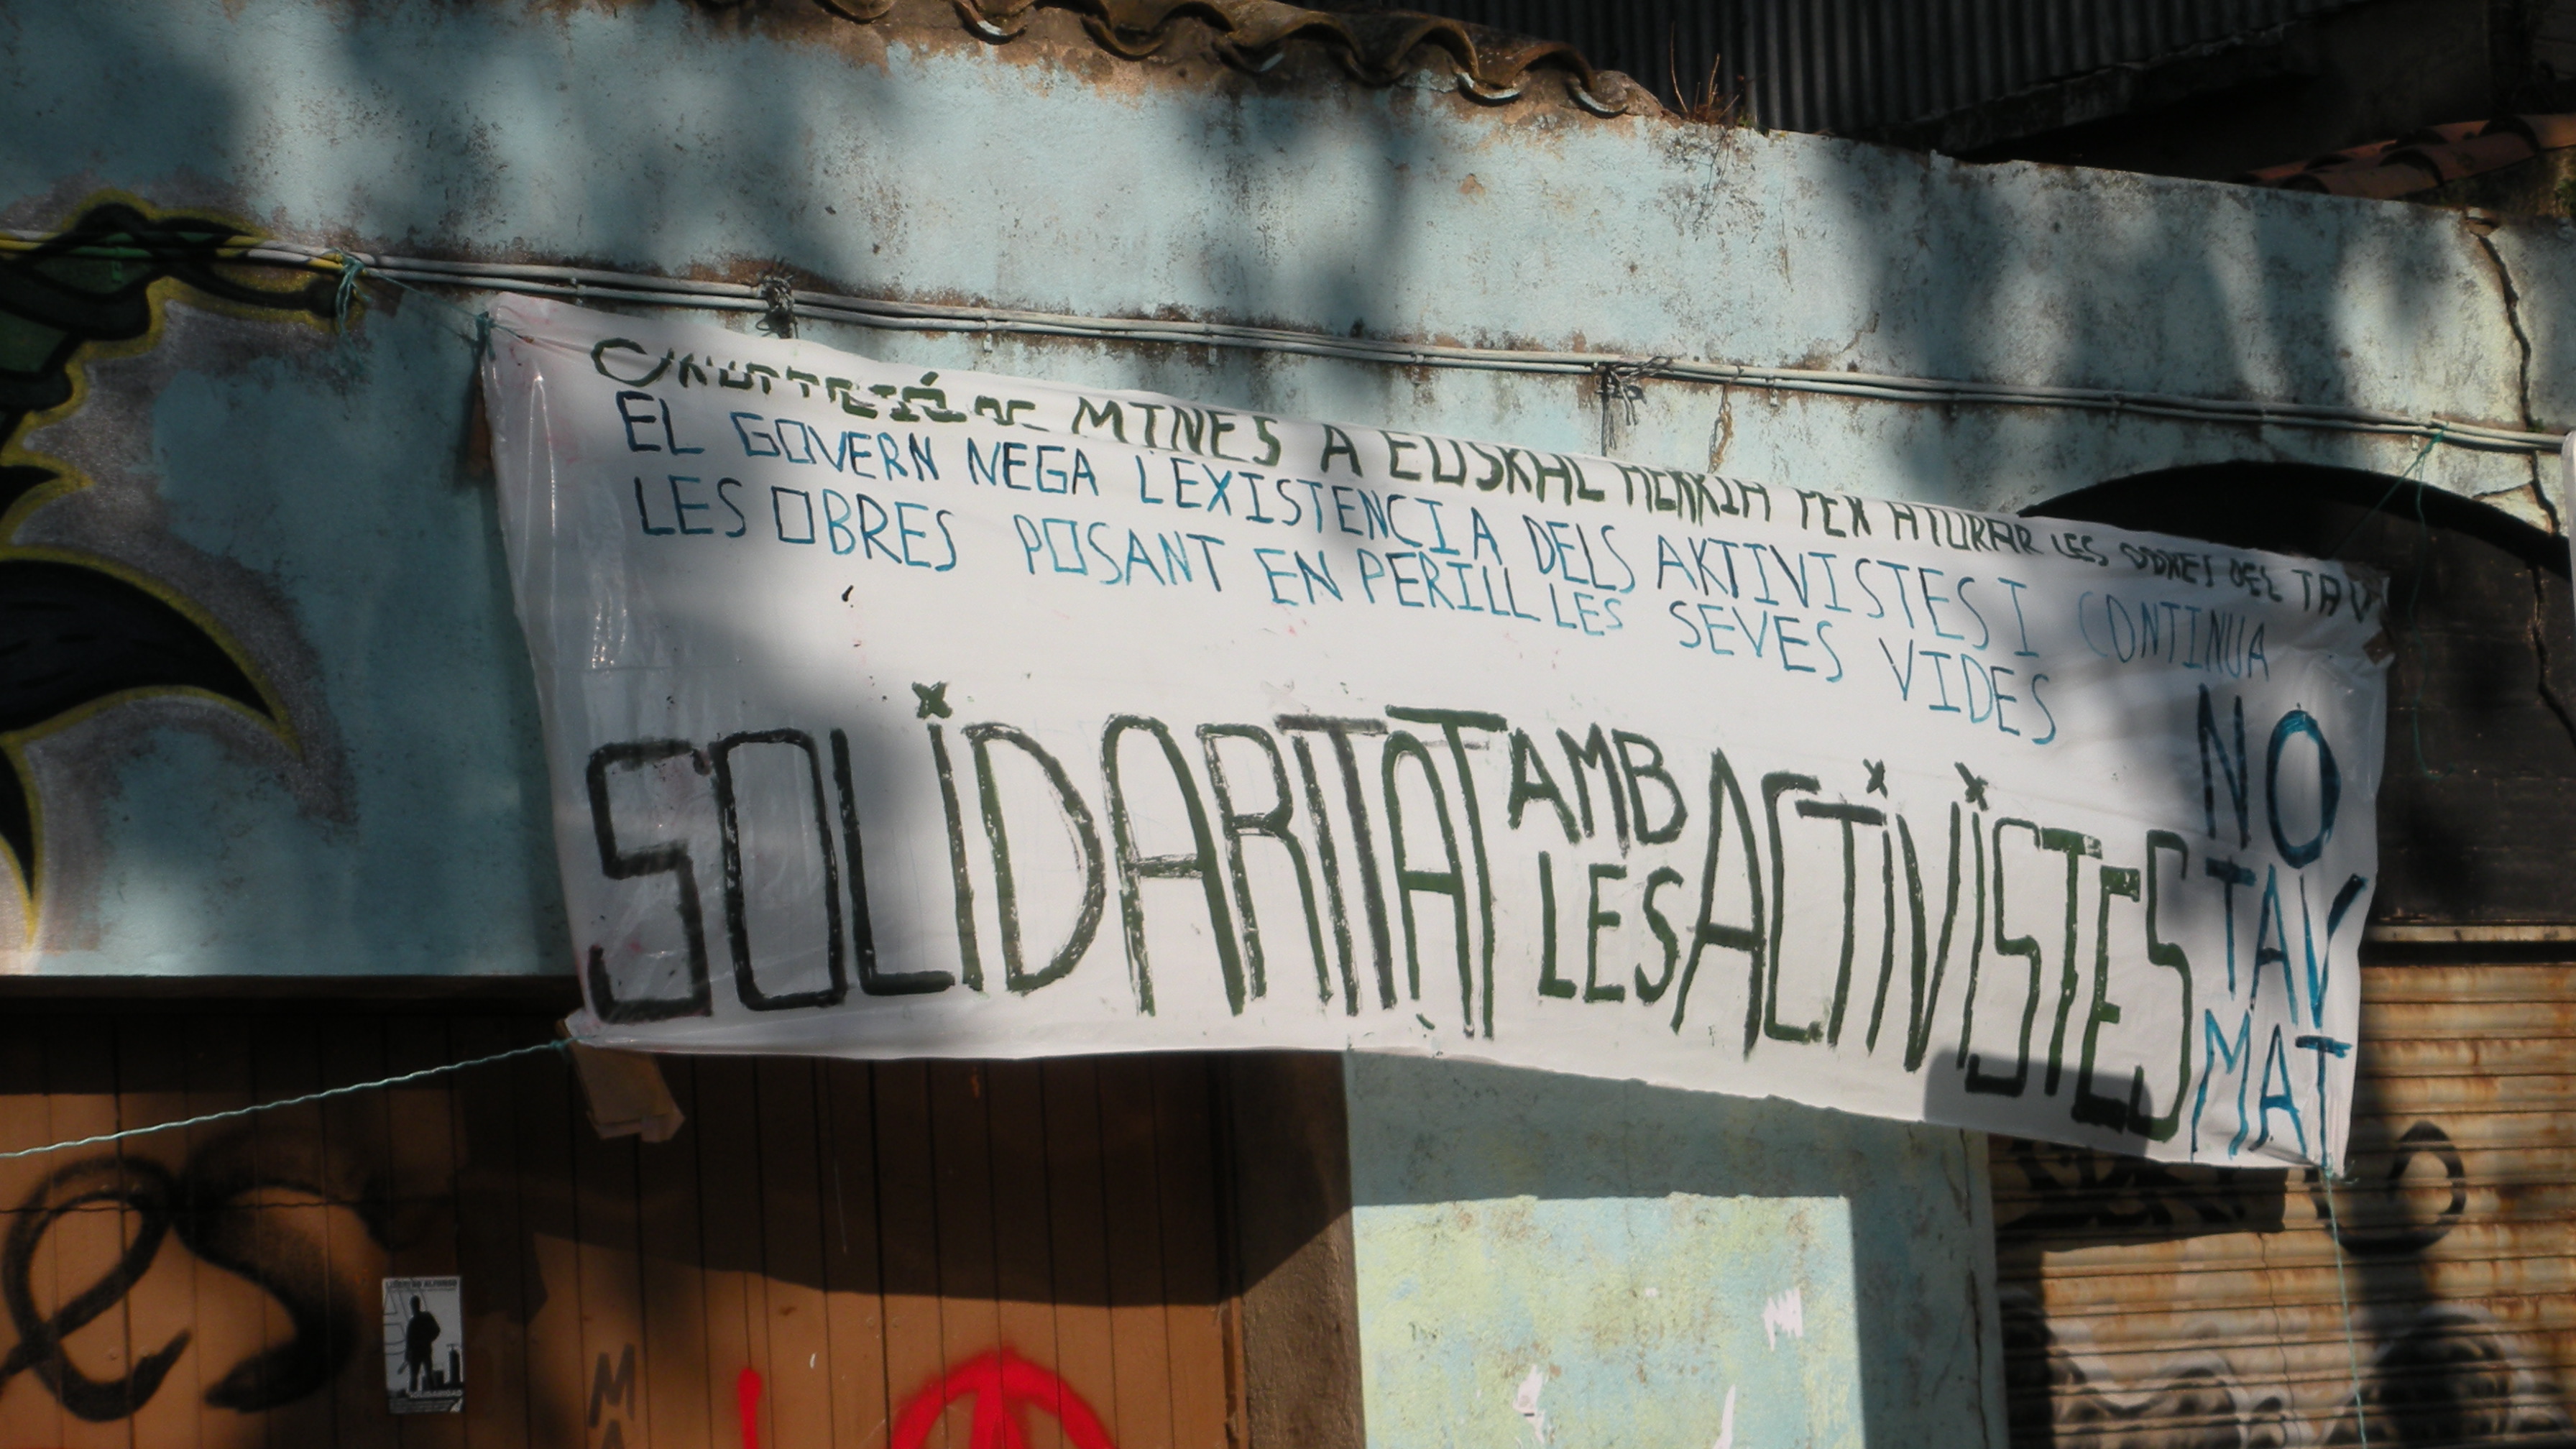 MINES A EUSKAL HERRIA PER ATURAR LES OBRES DEL TAV
EL GOVERN NEGA LEXISTENCIA DELS AKTIVISTES I CONTINUA
LES OBRES POSANT EN PERILL LES SEVES VIDES
SOLIDARITAT AMB
LES ACTIVISTES
NO
TAV
MAT
es
MA
SOLIDARIDAD